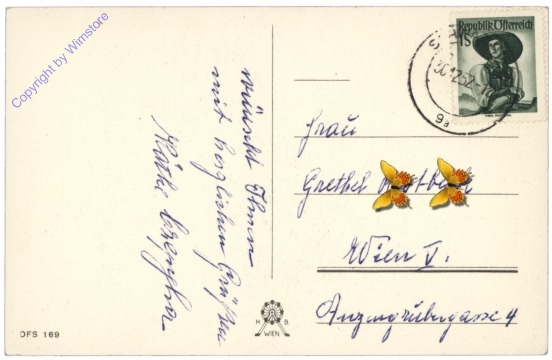 Copyright by Wimstore
wünscht Ihnen
mit herzlichen Grüßen
Käthe
Republik Österreich
1S
30.12.52
9a
Frau
Grethel
Wien V.
Anzengrubergasse 4
H B
WIEN
DFS 169